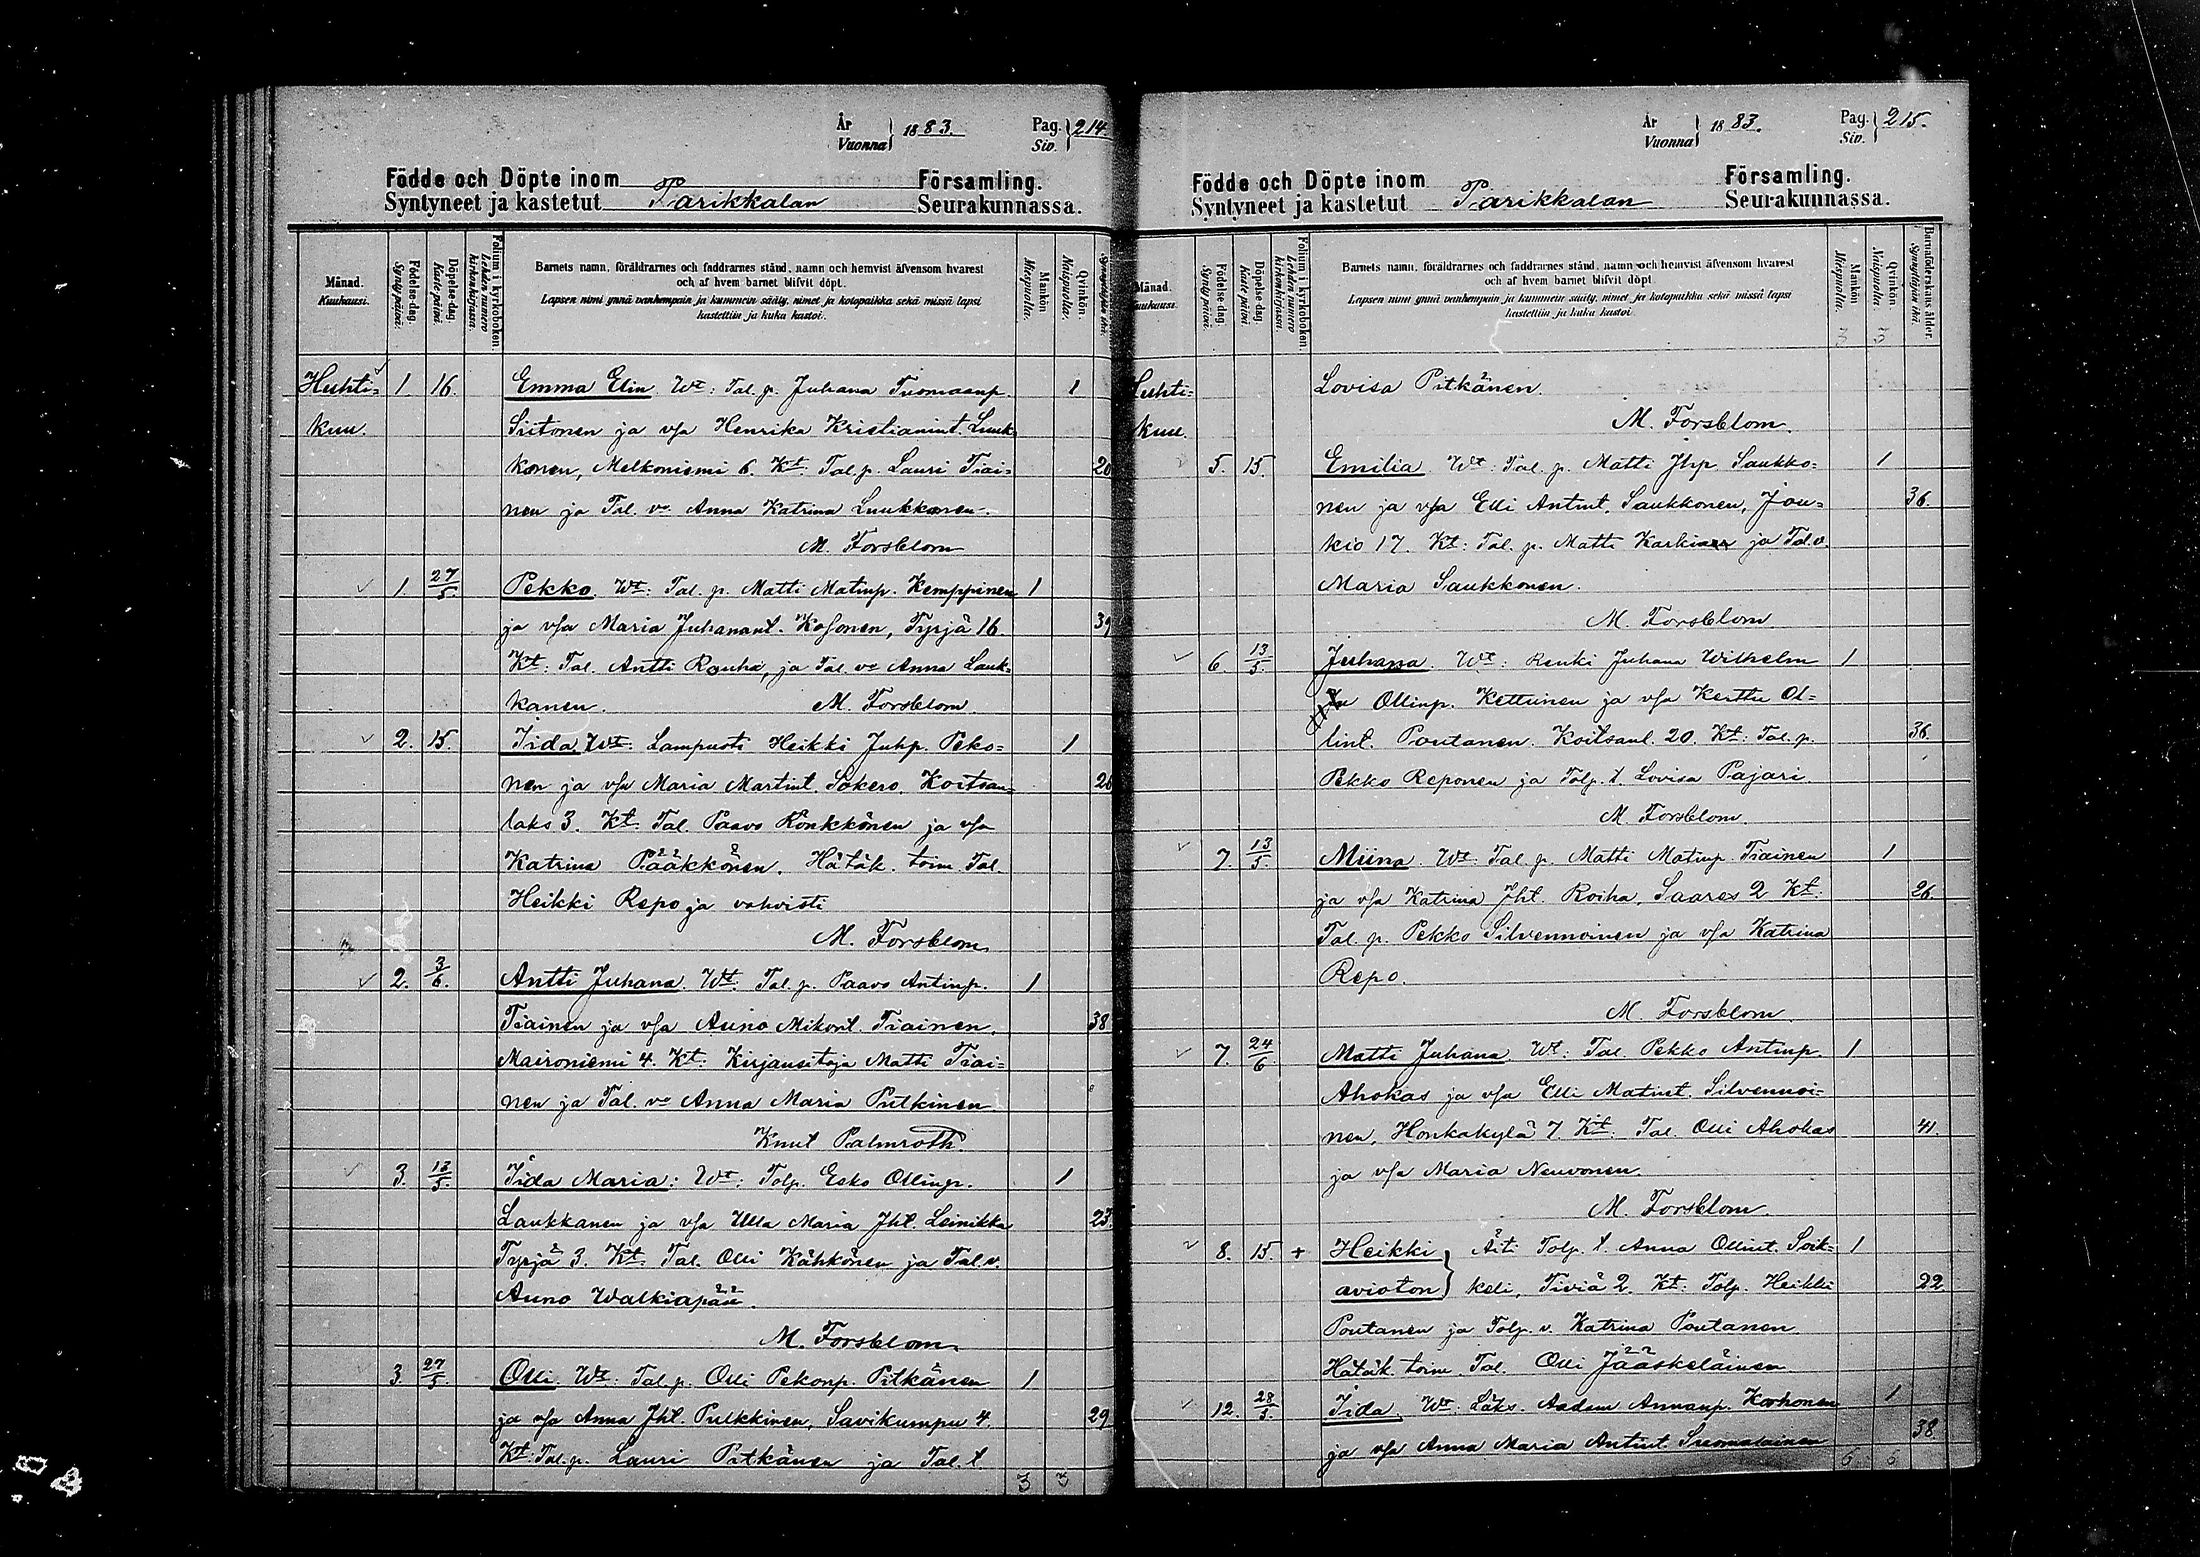 År
Vuonna } 1883. Pag.
Siv. } 214.
Födde och Döpte inom Församling.
Syntyneet ja kastetut Parikkalan Seurakunnassa.
Månad.
Kuukausi.
Födelse-dag.
Syntypäivä.
Döpelse-dag.
Kaste-päivä.
Folium i kyrkoboken.
Lehden numero kirkonkirjassa.
Barnets namn, föräldrarnes och faddrarnes stånd, namn och hemvist äfvensom hvarest
och af hvem barnet blifvit döpt.
Lapsen nimi ynnä vanhempain ja kummein sääty, nimet ja kotopaikka sekä missä lapsi
kastettiin ja kuka kastoi.
Mankön
Miespuolia.
Qvinkön.
Naispuolia.
Huhti= 1. 16. Emma Elin. Wt: Tal. p. Juhana Tuomaanp. 1
kuu. Siitonen ja v/a Henrika Kristianint. Luuk=
konen, Melkoniemi 6. Kt. Tal. p. Lauri Tiai= 20
nen ja Tal. v. Anna Katrina Luukkonen.
M. Forsblom
1. 27/5 Pekko. Wt: Tal. p. Matti Matinp. Kemppinen 1
ja v/a Maria Juhanant. Kosonen, Tyrjä 16 39
Kt: Tal. Antti Rouha, ja Tal. v. Anna Lauk=
kanen. M. Forsblom.
2. 15. Iida. Wt: Lampuoti Heikki Juhp. Peko= 1
nen ja v/a Maria Martint. Sokero. Koitsan= 26
laks 3. Kt: Tal. Paavo Könkkönen ja v/a
Katrina Pääkkönen. Hätäk. toim. Tal.
Heikki Repo ja vahvisti
M. Forsblom.
2. 3/6. Antti Juhana. Wt: Tal. p. Paavo Antinp. 1
Tiainen ja v/a Auno Mikont. Tiainen, 38
Maironiemi 4. Kt: Kirjansitoja Matti Tiai=
nen ja Tal. v. Anna Maria Putkinen
Knut Palmroth.
3. 13/5. Iida Maria: Wt: Tolp. Esko Ollinp. 1
Laukkanen ja v/a Ulla Maria Jht. Leinikka 23.
Tyrjä 3. Kt: Tal. Olli Kähkönen ja Tal. v.
Auno Walkiapää.
M. Forsblom.
3. 27/5. Olli. Wt: Tal. p. Olli Pekonp. Pitkänen 1
ja v/a Anna Jht. Pulkkinen, Savikumpu 4. 29
Kt: Tal. p. Lauri Pitkänen ja Tal. t.
3 3
År
Vuonna } 1883. Pag.
Siv. } 215.
Födde och Döpte inom Församling.
Syntyneet ja kastetut Parikkalan Seurakunnassa.
Månad.
Kuukausi.
Födelse-dag.
Syntypäivä.
Döpelse-dag.
Kaste-päivä.
Folium i kyrkoboken.
Lehden numero kirkonkirjassa.
Barnets namn, föräldrarnes och faddrarnes stånd, namn och hemvist äfvensom hvarest
och af hvem barnet blifvit döpt.
Lapsen nimi ynnä vanhempain ja kummein sääty, nimet ja kotopaikka sekä missä lapsi
kastettiin ja kuka kastoi.
Mankön
Miespuolia.
Qvinkön.
Naispuolia.
Barnaföderskans ålder.
Synnyttäjän ikä.
3 3
Huhti= Lovisa Pitkänen.
kuu. M. Forsblom.
5. 15. Emilia. Wt: Tal. p. Matti Jhp. Saukko= 1
nen ja v/a Elli Antint. Saukkonen, Jou= 36.
kio 17. Kt: Tal. p. Matti Karkia ja Tal. v.
Maria Saukkonen.
M. Forsblom
6. 13/5. Juhana. Wt: Renki Juhana Wilhelm 1
Ollinp. Kettunen ja v/a Kerttu Ol=
lint. Poutanen. Koitsanl. 20. Kt: Tal. p. 36.
Pekko Reponen ja Tolp. t. Lovisa Pajari.
M. Forsblom.
7. 13/5. Miina. Wt: Tal. p. Matti Matinp. Tiainen 1
ja v/a Katrina Jht. Roiha, Saares 2 Kt: 26.
Tal. p. Pekko Silvennoinen ja v/a Katrina
Repo.
M. Forsblom.
7. 24/6 Matti Juhana. Wt: Tal. Pekko Antinp. 1
Ahokas ja v/a Elli Matint. Silvennoi=
nen, Honkakylä 7. Kt: Tal. Olli Ahokas 41.
ja v/a Maria Neuvonen.
M. Forsblom.
8. 15. + Heikki } Äiti Tolp. t. Anna Ollint. Soik= 1
avioton } keli, Tiviä 2. Kt: Tolp. Heikki 22
Poutanen ja Tolp. v. Katrina Poutanen.
Hätäk. toim. Tal. Olli Jääskeläinen
12. 28/5. Iida. Wt: Läks. Aadam Annanp. Korhonen 1
ja v/a Anna Maria Antint. Suomalainen 38
6 6